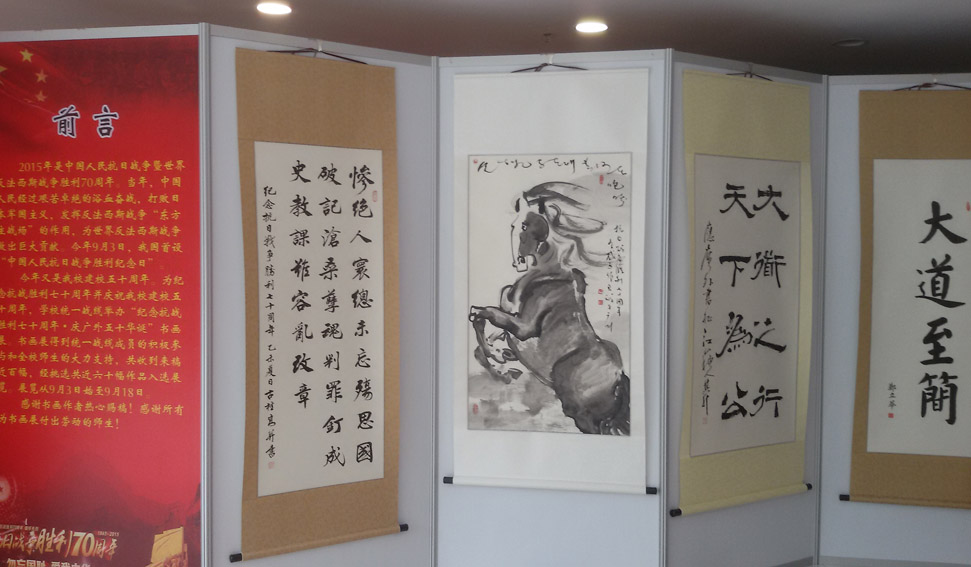 前言
2015年是中国人民抗日战争暨世界
反法西斯战争胜利70周年。当年,中国
人民经过艰苦卓绝的浴血奋战,打败日
本军国主义,发挥反法西斯战争“东方
主战场”的作用,为世界反法西斯战争
做出巨大贡献。今年9月3日,我国首设
“中国人民抗日战争胜利纪念日”
今年又是我校建校五十周年。为纪
念抗战胜利七十周年并庆祝我校建校五
十周年,学校统一战线举办“纪念抗战
胜利七十周年·庆广外五十华诞”书画
展。书画展得到统一战线成员的积极参
与和全校师生的大力支持,共收到来稿
近百幅,经挑选共近六十幅作品入选展
览。展览从9月3日始至9月18日。
感谢书画作者热心赐稿!感谢所有
为书画展付出劳动的师生!
战争胜利70周年
1945-2015
勿忘国耻
慘絕人寰總未忘殤思國
破記滄桑孽魂判罪釘成
史教課難容亂改章
纪念抗日战争勝利七十周年
大衜之行
天下為公
大道至簡